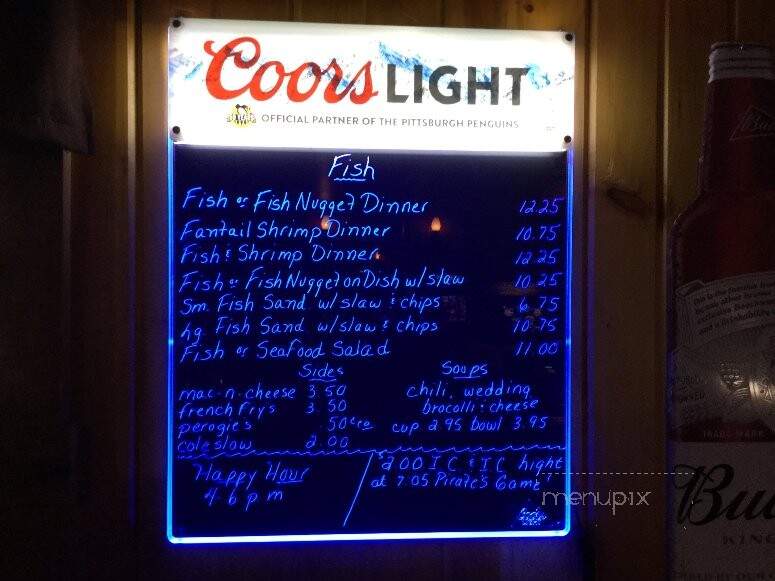 Coors LIGHT
OFFICIAL PARTNER OF THE PITTSBURGH PENGUINS
Fish
Fish or Fish Nugget Dinner 12.25
Fantail Shrimp Dinner 10.75
Fish & Shrimp Dinner 12.25
Fish or Fish Nugget on Dish w/slaw 10.25
Sm. Fish Sand w/slaw & chips 6.75
Lg. Fish Sand w/slaw & chips 10.75
Fish or Seafood Salad 11.00
Sides Soups
mac-n-cheese 3.50 chili, wedding
french frys 3.50 brocolli & cheese
perogie's .50 ea cup 2.95 bowl 3.95
coleslaw 2.00
Happy Hour
4-6 pm
2.00 IC & IC Light
at 7:05 Pirate's Game
menupix
Bud
KING
TRADE MARK